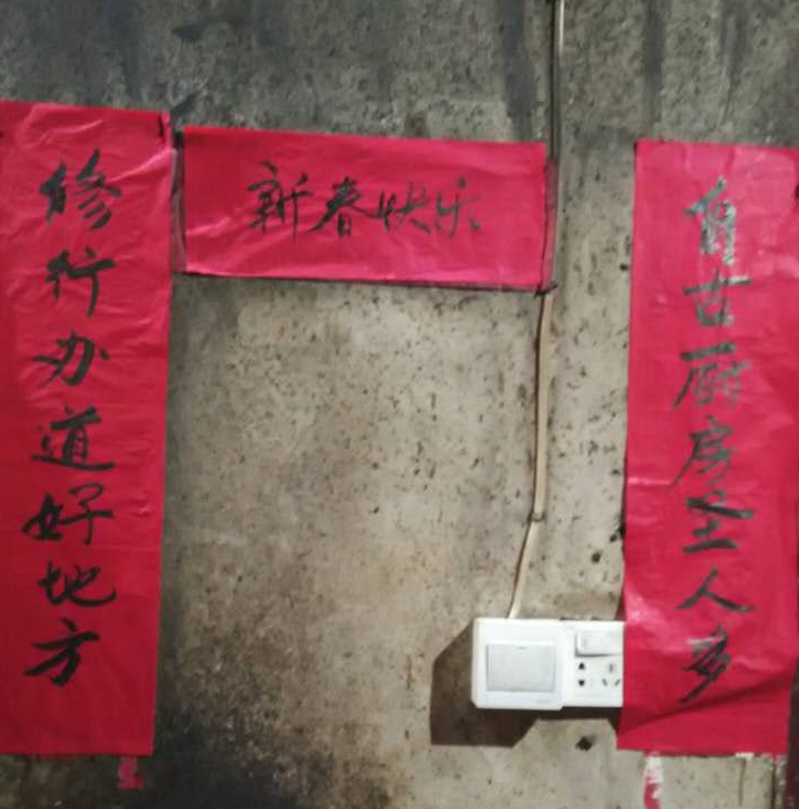 自古厨房圣人多
修行办道好地方
新春快乐